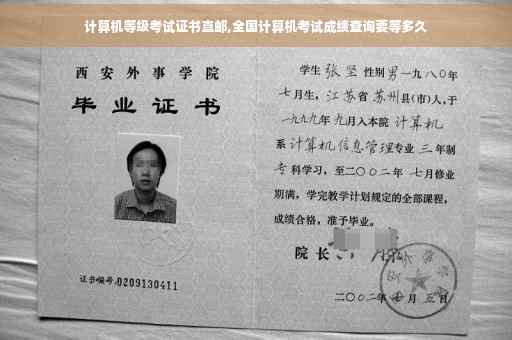 计算机等级考试证书直邮,全国计算机考试成绩查询要等多久
西安外事学院
毕业证书
证书编号:0209130411
学生 张坚 性别 男 一九八〇年
七月生, 江苏省 苏州县(市)人,于
一九九九年 九月入本院 计算机
系 计算机信息管理 专业 三 年制
专科学习,至二〇〇二年 七月修业
期满,学完教学计划规定的全部课程,
成绩合格,准予毕业。
院长
二〇〇二年 月五日